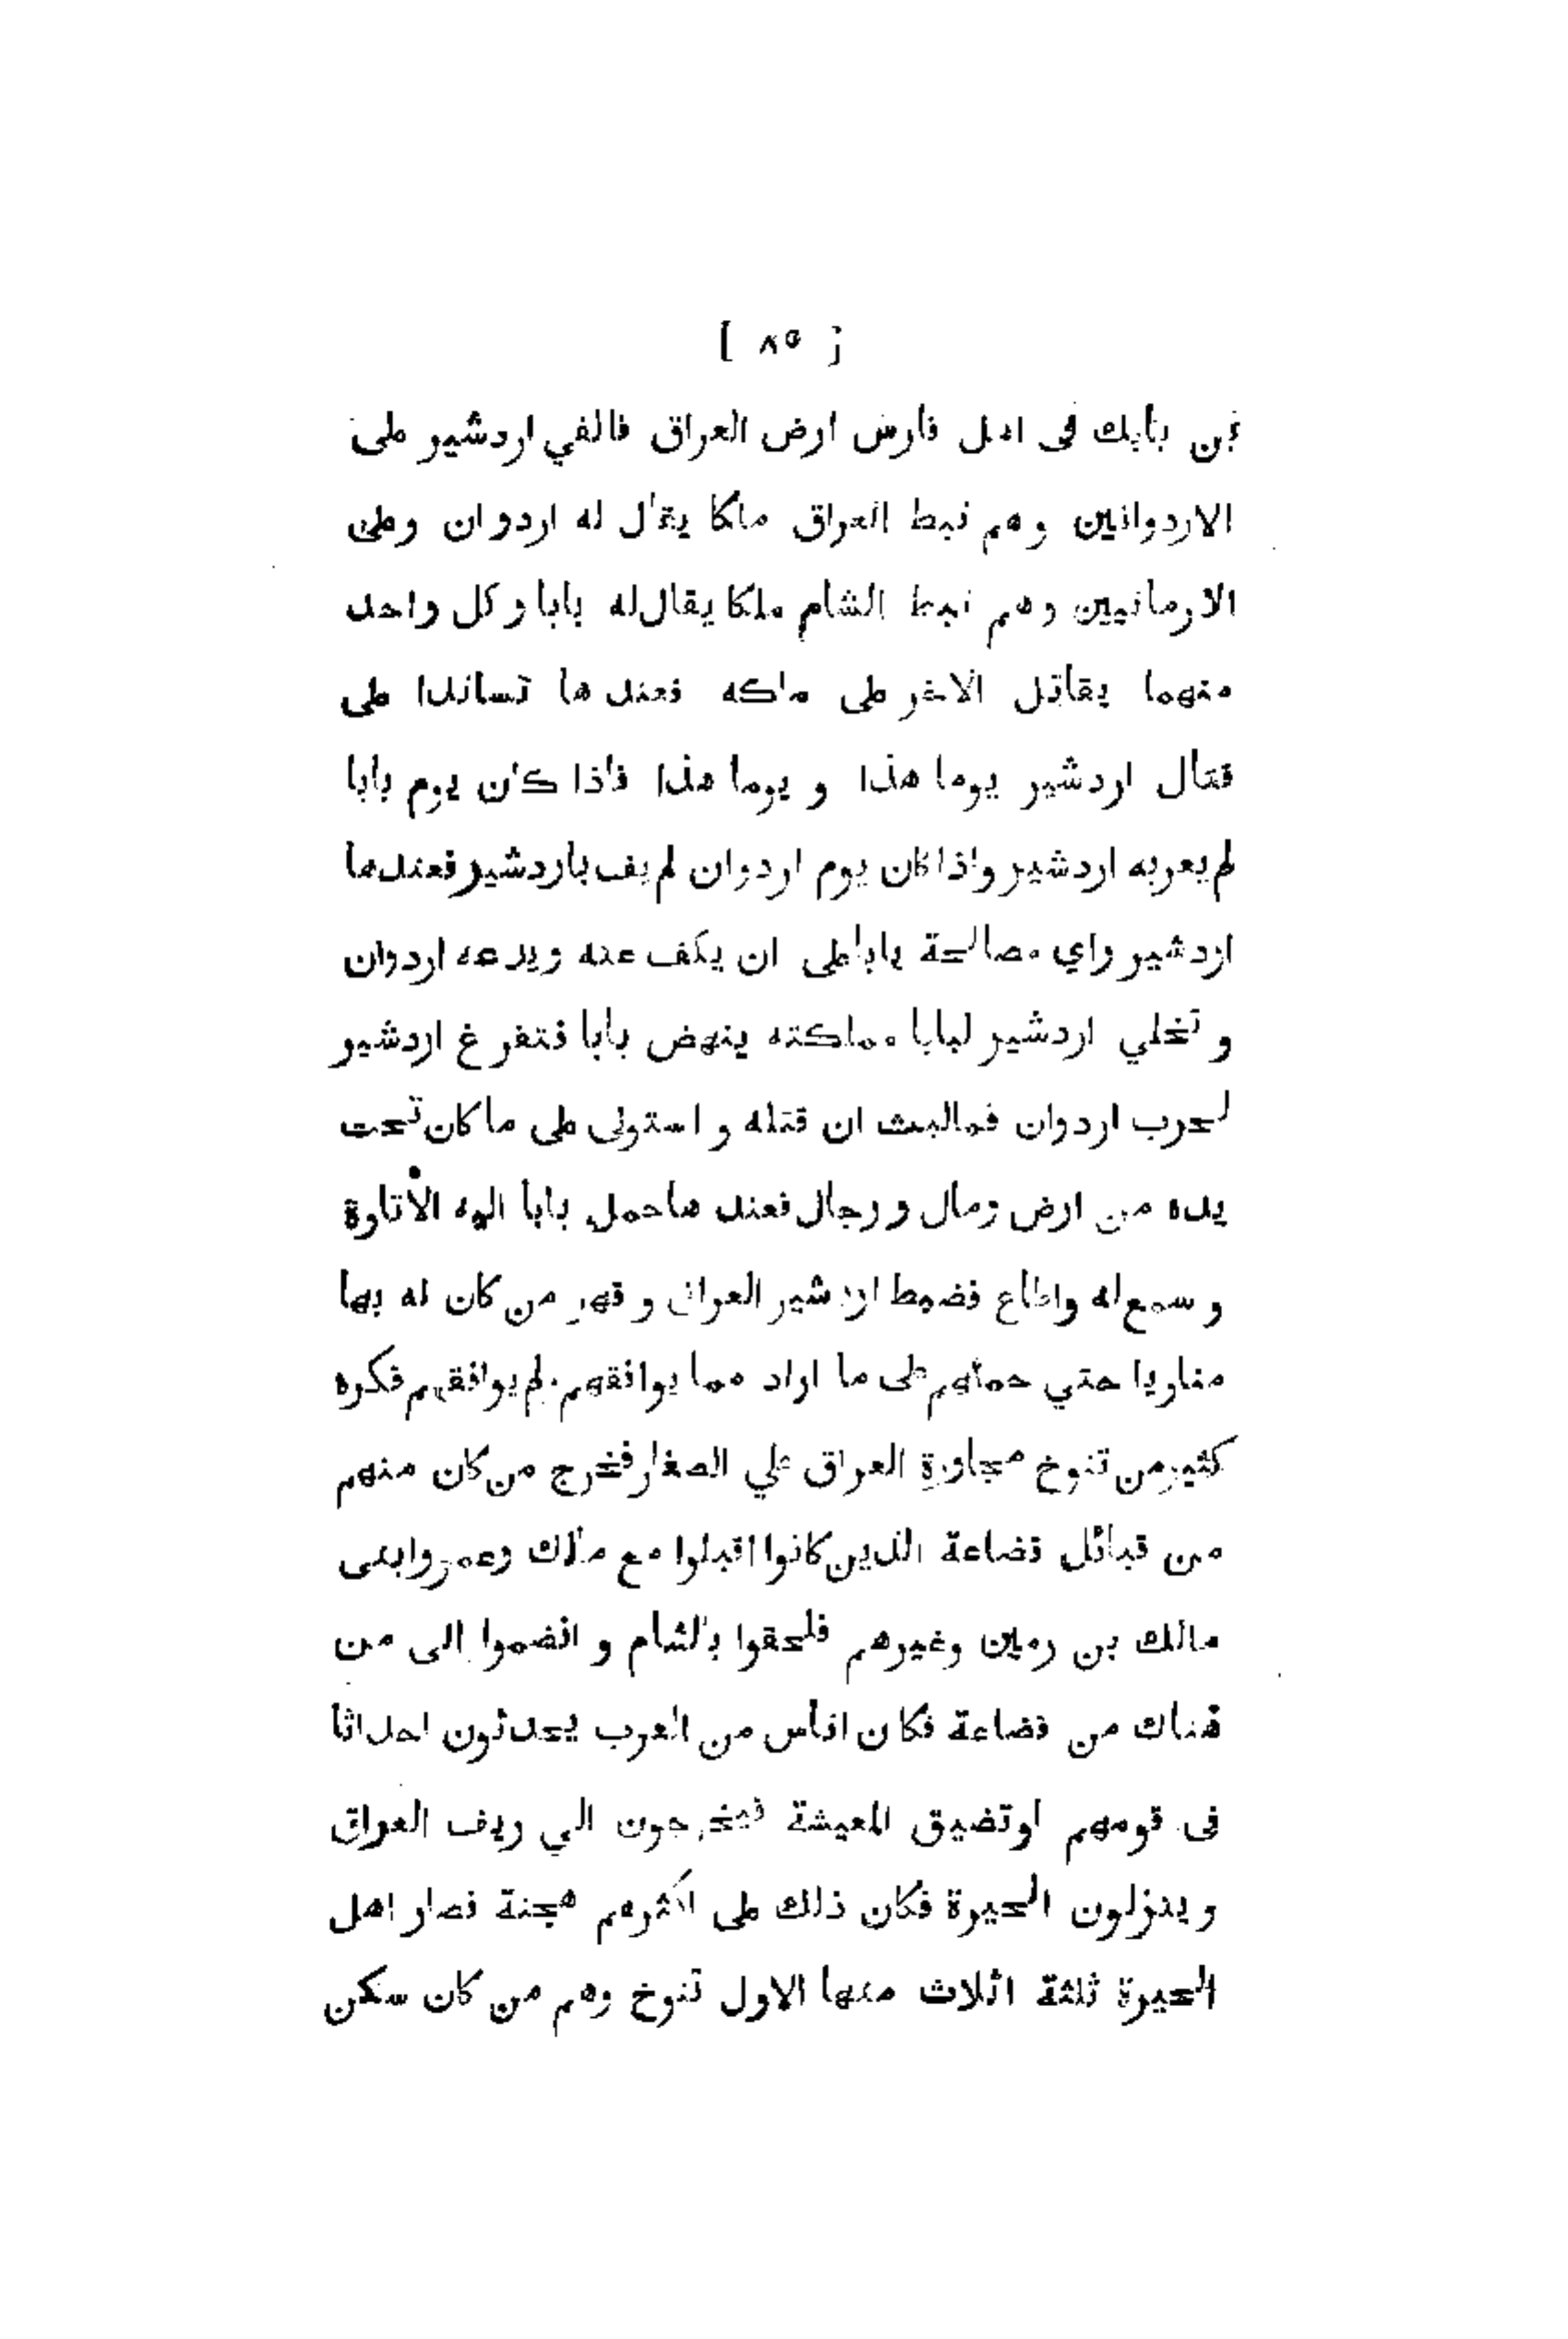 [ ٨٥ ]
بن بابك فى اهل فارس ارض العراق فالفي اردشير على
الاردوانيين وهم نبط العراق ملكا يقال له اردوان وعلى
الارمانيين وهم نبط الشام ملكا يقال له بابا و كل واحد
منهما يقاتل الاخر على ملكه فعند ها تساندا على
قتال اردشير يوما هذا و يوما هذا فاذا كان يوم بابا
لم يعربه اردشير واذا كان يوم اردوان لم يف باردشير فعندها
اردشير واي مصالحة بابا على ان يكف عنه ويدعه اردوان
و تخلي اردشير لبابا مملكته ينهض بابا فتفرغ اردشير
لحرب اردوان فمالبث ان قتله و استولى على ما كان تحت
يده من ارض ومال و رجال فعند ها حمل بابا اليه الأتاوة
و سمع له واطاع فضبط اردشير العراق و قهر من كان له بها
مناويا حتي حملهم على ما اراد مما يوافقهم ولم يوافقهم فكره
كثير من تنوخ مجاورة العراق علي الصغار فخرج من كان منهم
من قبائل قضاعة الذين كانوا اقبلوا مع مالك وعمرو ابنى
مالك بن رمين وغيرهم فلحقوا بالشام و انضموا الى من
هناك من قضاعة فكان اناس من العرب يحدثون احداثا
فى قومهم او تضيق المعيشة فيخرجون الي ريف العراق
و ينزلون الحيرة فكان ذلك على اكثرهم هجنة فصار اهل
الحيرة ثلثة اثلاث منها الاول تنوخ وهم من كان سكن